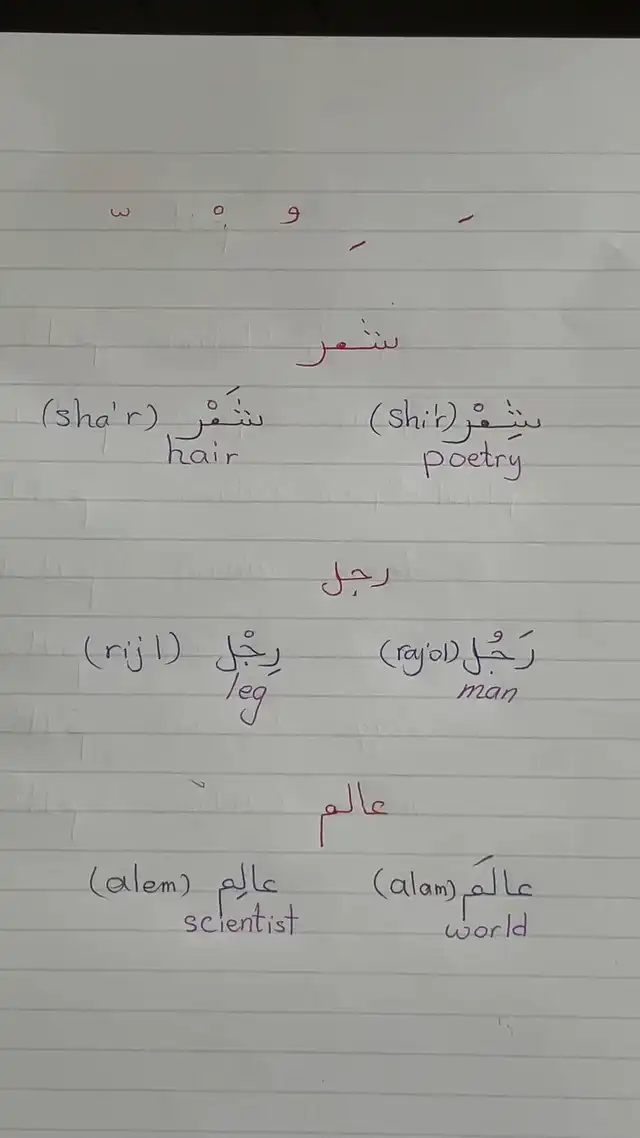 َ ِ ُ ْ ّ
شعر
شِعْر (shi'r) شَعْر (sha'r)
poetry hair
رجل
رَجُل (rajol) رِجْل (rijl)
man leg
عالم
عالَم (alam) عالِم (alem)
world scientist